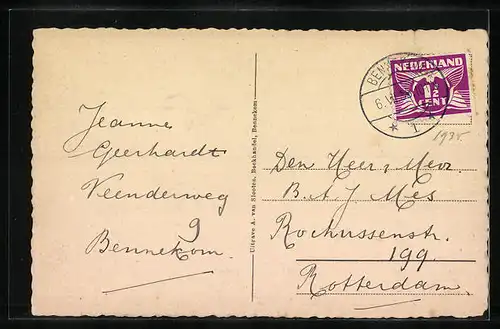 Jeanne
Geerhardt
Veenderweg
9
Bennekom.
Uitgave A. van Slooten, Boekhandel, Bennekom
NEDERLAND
1½
CENT
BEN
6.
1
1935
Den Heer & Mevr.
B. A. J. Mes
Rochussenstr.
199.
Rotterdam.